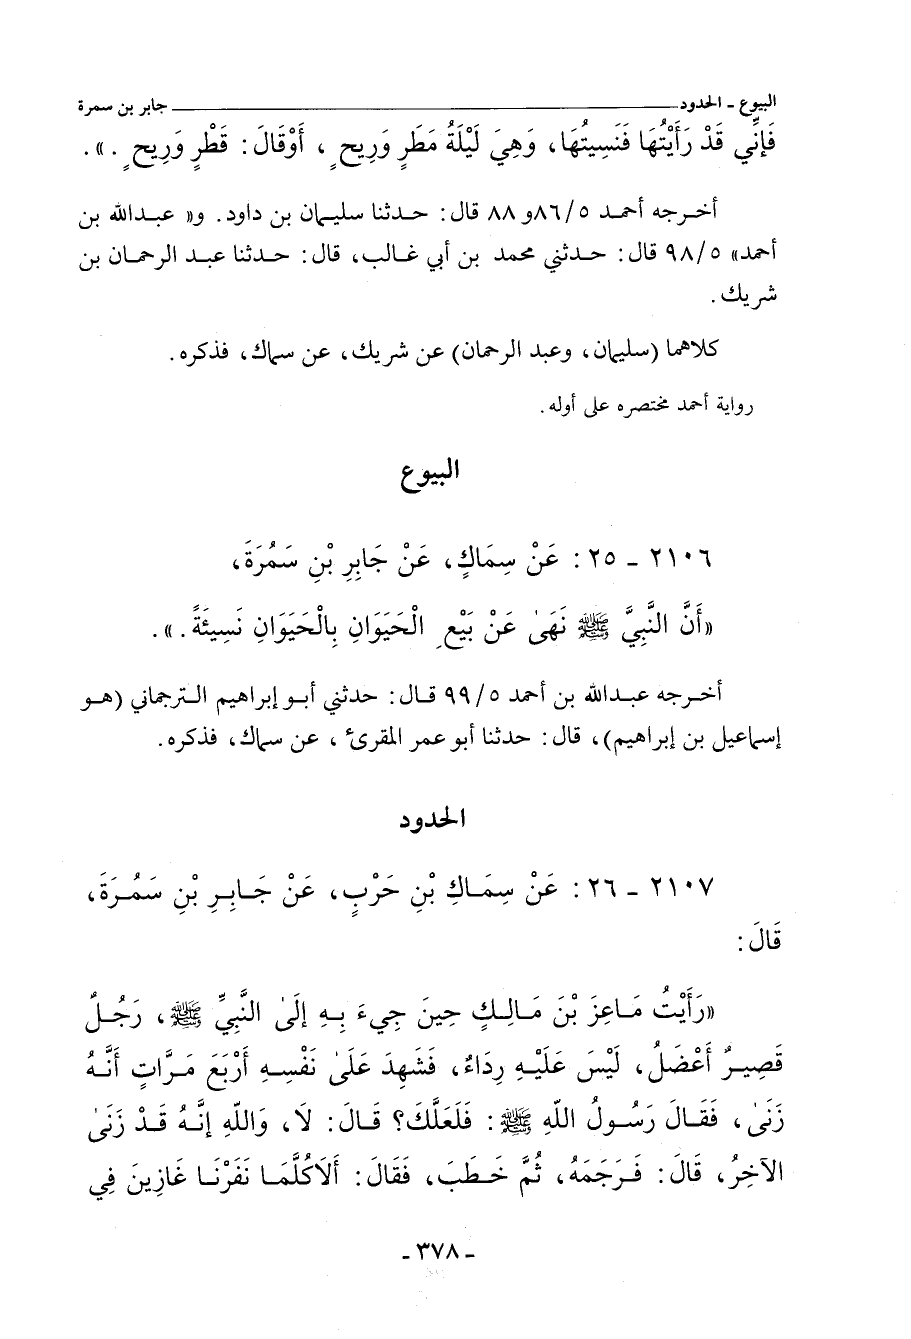 البيوع - الحدود ــــــــــــــــــــــــــــــــــــــــــــــــ جابر بن سمرة
فَإِنِّي قَدْ رَأَيْتُهَا فَنَسِيتُهَا، وَهِيَ لَيْلَةُ مَطَرٍ وَرِيحٍ، أَوْقَالَ: قَطْرٍ وَرِيحٍ.».
أخرجه أحمد ٨٦/٥ و٨٨ قال: حدثنا سليمان بن داود. و« عبدالله بن
أحمد» ٩٨/٥ قال: حدثني محمد بن أبي غالب، قال: حدثنا عبد الرحمان بن
شريك.
كلاهما (سليمان، وعبد الرحمان) عن شريك، عن سماك، فذكره.
رواية أحمد مختصره على أوله.
البيوع
٢١٠٦ - ٢٥: عَنْ سِمَاكٍ، عَنْ جَابِرِ بْنِ سَمُرَةَ،
«أَنَّ النَّبِيَّ ﷺ نَهَىٰ عَنْ بَيْعِ الْحَيَوَانِ بِالْحَيَوَانِ نَسِيئَةً.».
أخرجه عبدالله بن أحمد ٩٩/٥ قال: حدثني أبو إبراهيم الترجماني (هو
إسماعيل بن إبراهيم)، قال: حدثنا أبو عمر المقرئ، عن سماك، فذكره.
الحدود
٢١٠٧ - ٢٦: عَنْ سِمَاكِ بْنِ حَرْبٍ، عَنْ جَابِرِ بْنِ سَمُرَةَ،
قَالَ:
«رَأَيْتُ مَاعِزَ بْنَ مَالِكٍ حِينَ جِيءَ بِهِ إِلَىٰ النَّبِيِّ ﷺ، رَجُلٌ
قَصِيرٌ أَعْضَلُ، لَيْسَ عَلَيْهِ رِدَاءٌ، فَشَهِدَ عَلَىٰ نَفْسِهِ أَرْبَعَ مَرَّاتٍ أَنَّهُ
زَنَىٰ، فَقَالَ رَسُولُ اللّهِ ﷺ: فَلَعَلَّكَ؟ قَالَ: لَا، وَاللّهِ إِنَّهُ قَدْ زَنَىٰ
الآخِرُ، قَالَ: فَرَجَمَهُ، ثُمَّ خَطَبَ، فَقَالَ: أَلَاكُلَّمَا نَفَرْنَا غَازِينَ فِي
- ٣٧٨ -